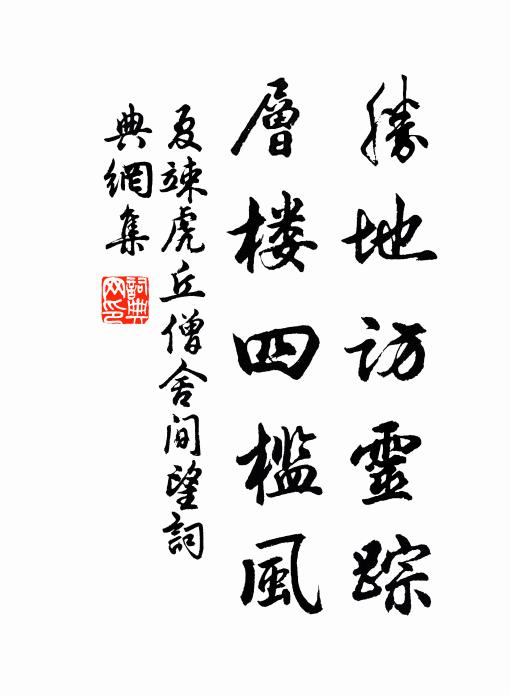 勝地訪靈踪
層楼四檻風
夏竦虎丘僧舍閒望詞
典網集
詞典网印